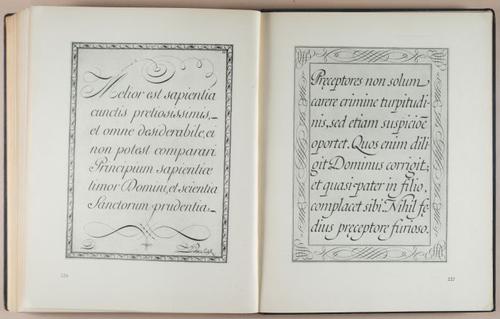 Melior est sapientia
cunctis pretiosissimis,
et omne desiderabile, ei
non potest comparari
Principium sapientiæ
timor Domini, et scientia
Sanctorum prudentia.
226
Preceptores non solum
carere crimine turpitudi-
nis, sed etiam suspicioē
oportet. Quos enim dili
git Dominus corrigit;
et quasi pater in filio,
complacet sibi. Nihil fe
dius preceptore furioso.
227